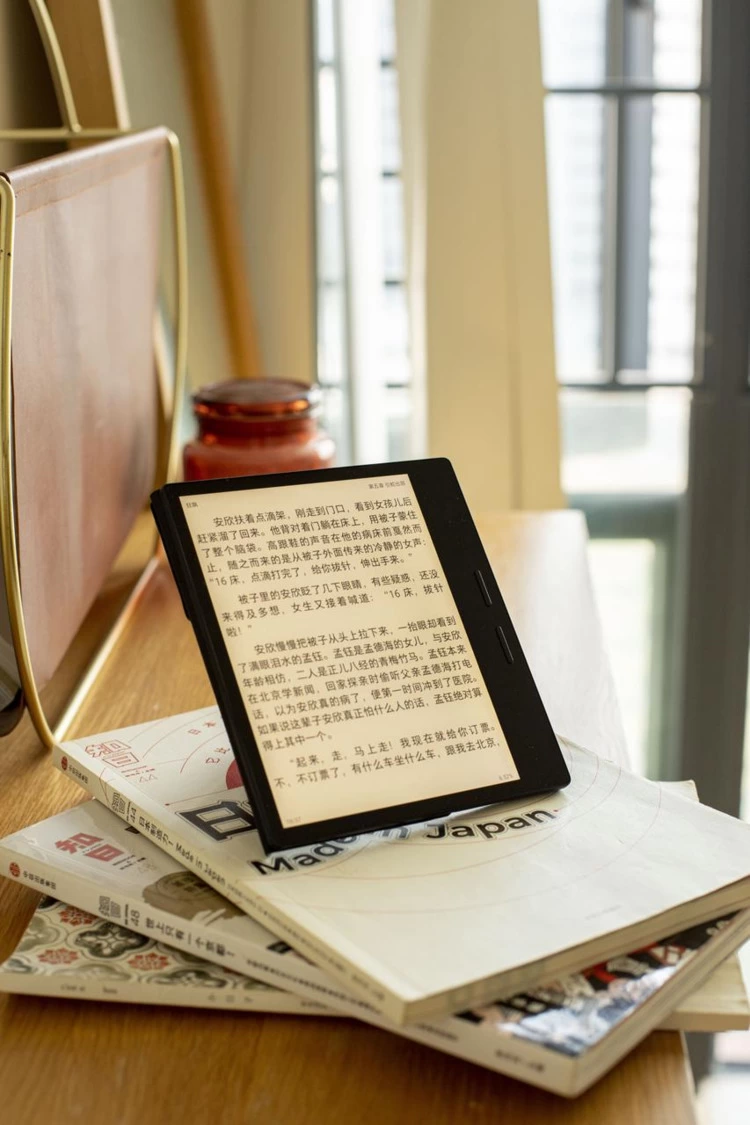 狂飙
第五章 引蛇出洞
安欣扶着点滴架，刚走到门口，看到女孩儿后
赶紧溜了回来。他背对着门躺在床上，用被子蒙住
了整个脑袋。高跟鞋的声音在他的病床前戛然而
止，随之而来的是从被子外面传来的冷静的女声：
“16 床，点滴打完了，给你拔针，伸出手来。”
被子里的安欣眨了几下眼睛，有些疑惑，还没
来得及多想，女生又接着喊道：“16 床，拔针
啦！”
安欣慢慢把被子从头上拉下来，一抬眼却看到
了满眼泪水的孟钰。孟钰是孟德海的女儿，与安欣
年龄相仿，二人是正儿八经的青梅竹马。孟钰本来
在北京学新闻，回家探亲时偷听父亲孟德海打电
话，以为安欣真的病了，便第一时间冲到了医院。
如果说这辈子安欣真正怕什么人的话，孟钰绝对算
得上其中一个。
“起来，走，马上走！我现在就给你订票。
不，不订票了，有什么车坐什么车，跟我去北京，
日本
日
Made in Japan
知日
44 日本制造力！Made in Japan
48 世上只有一个京都！